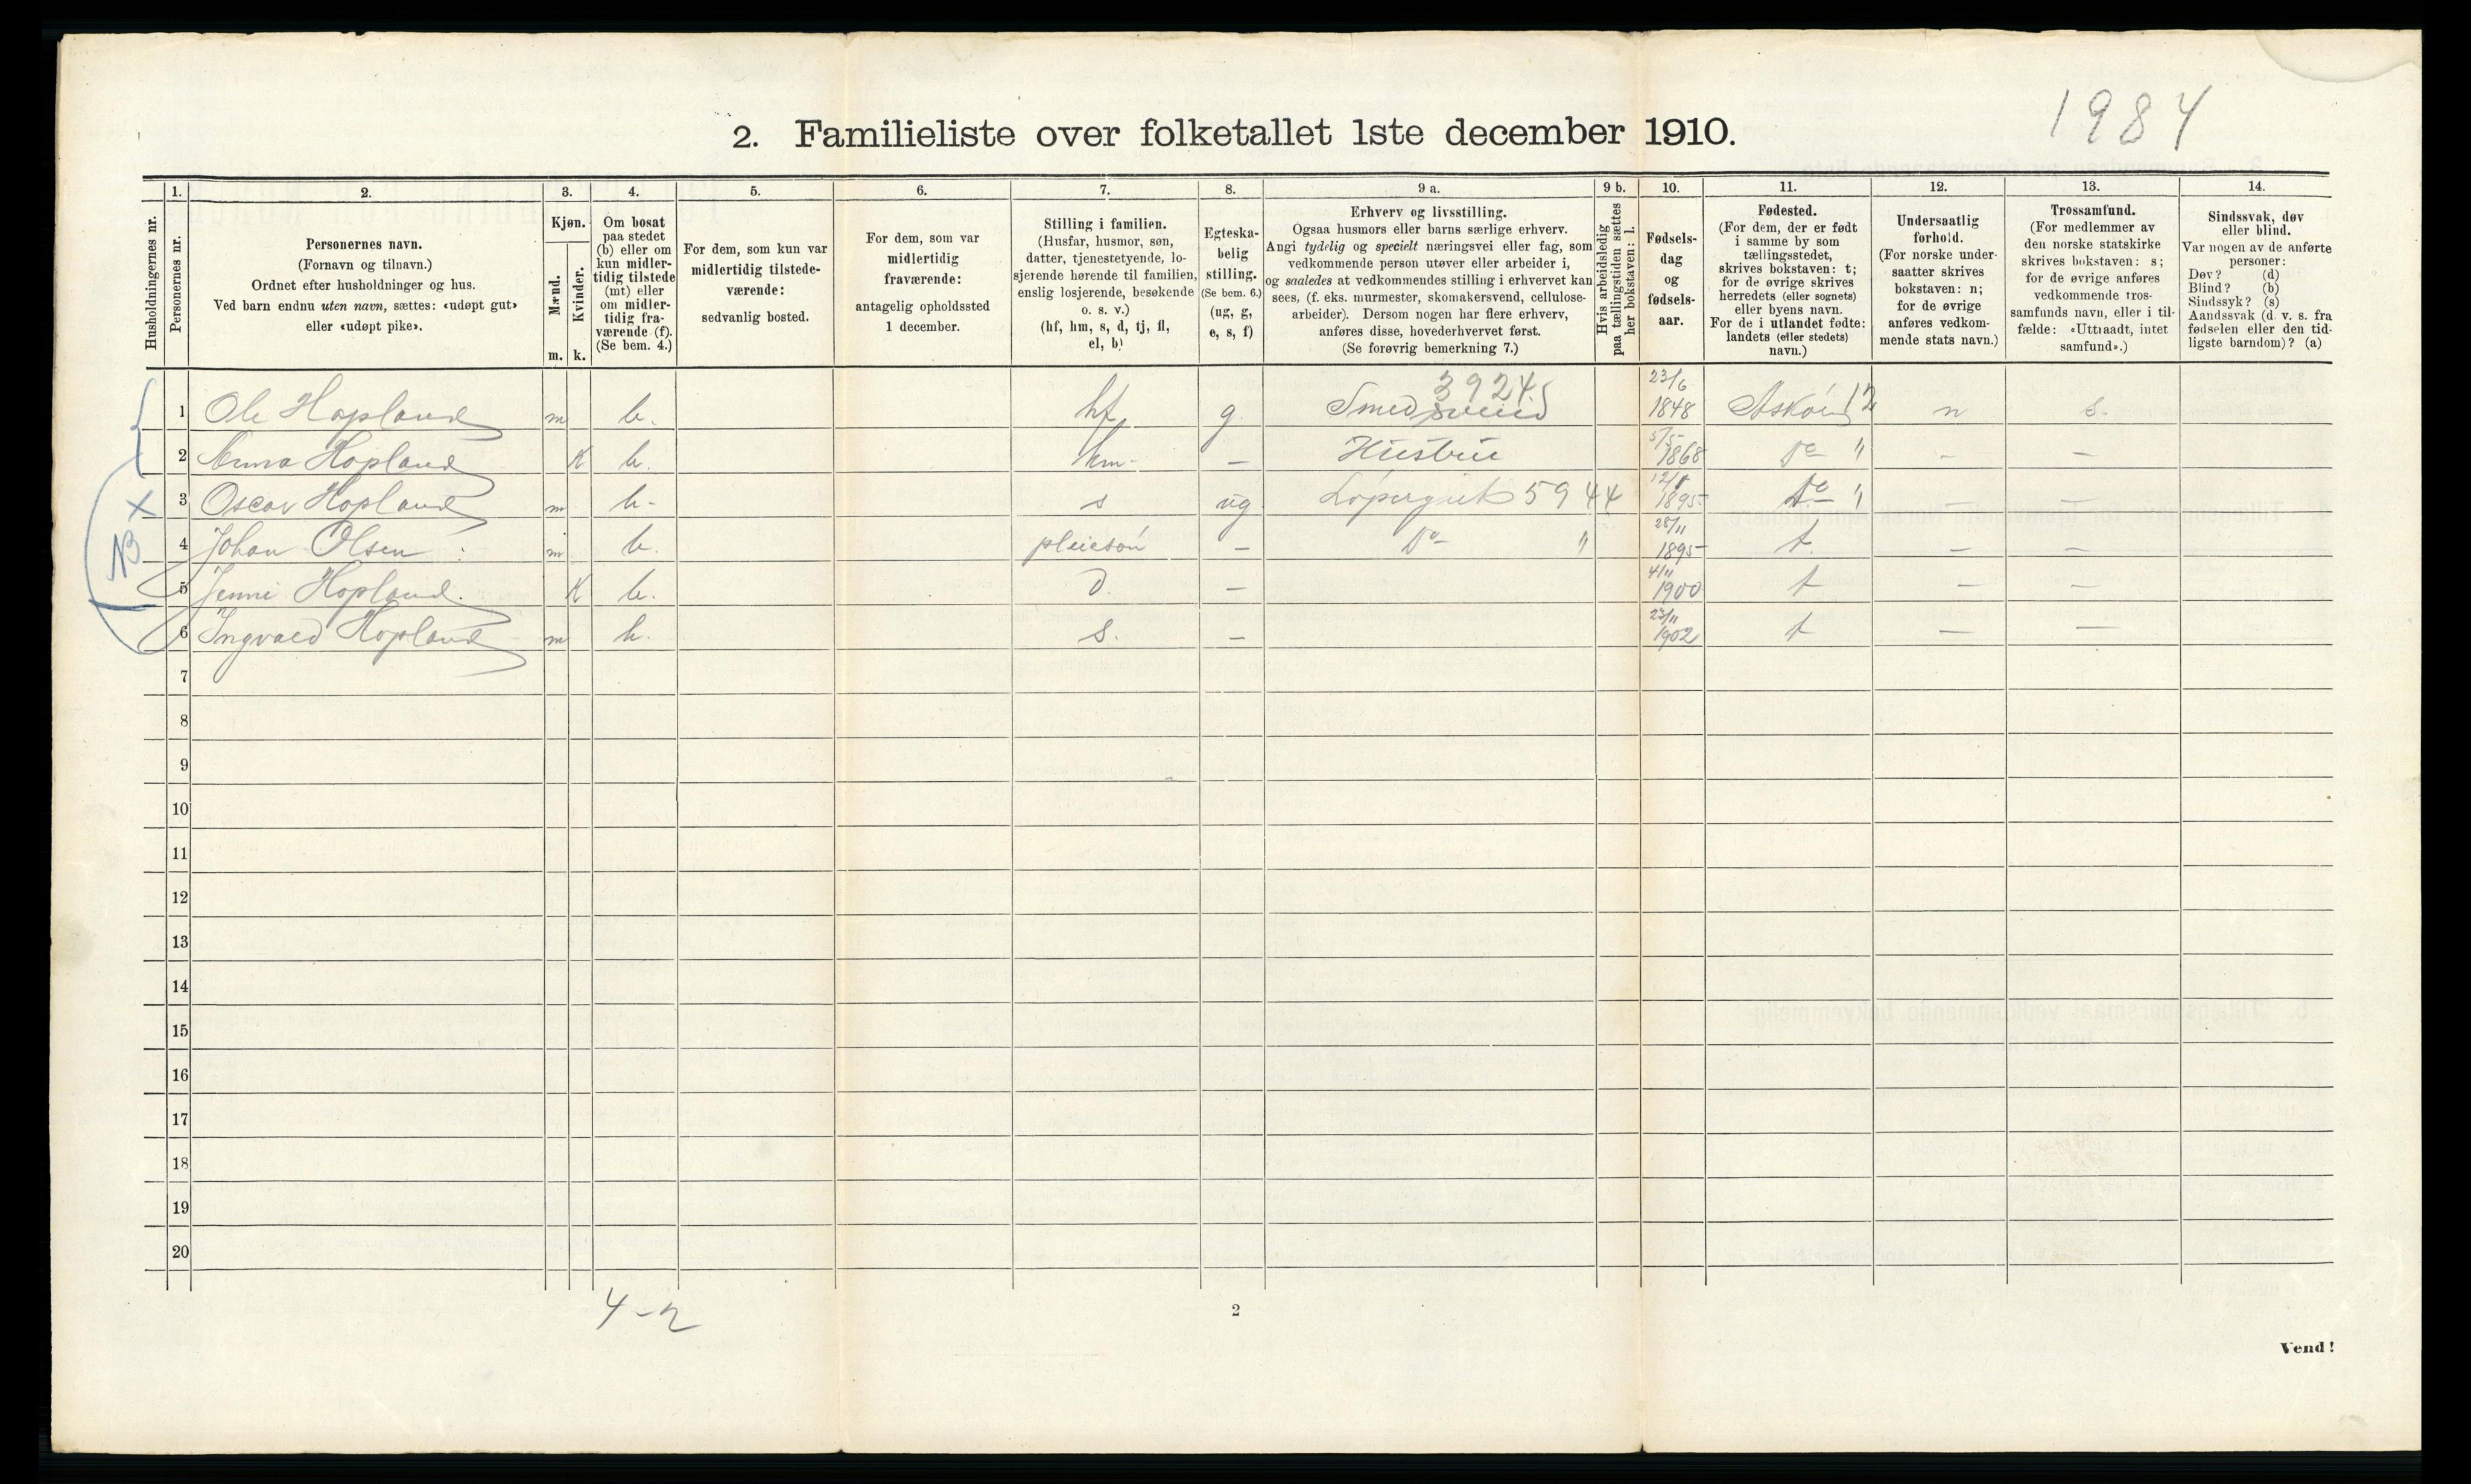 1984
2. Familieliste over folketallet 1ste december 1910.
Husholdningernes nr.
1. Personernes nr.
2. Personernes navn. (Fornavn og tilnavn.) Ordnet efter husholdninger og hus. Ved barn endnu uten navn, sættes: «udøpt gut» eller «udøpt pike».
3. Kjøn. Mænd. m. Kvinder. k.
4. Om bosat paa stedet (b) eller om kun midlertidig tilstede (mt) eller om midlertidig fraværende (f). (Se bem. 4.)
5. For dem, som kun var midlertidig tilstedeværende: sedvanlig bosted.
6. For dem, som var midlertidig fraværende: antagelig opholdssted 1 december.
7. Stilling i familien. (Husfar, husmor, søn, datter, tjenestetyende, losjerende hørende til familien, enslig losjerende, besøkende o. s. v.) (hf, hm, s, d, tj, fl, el, b)
8. Egteskabelig stilling. (Se bem. 6.) (ug, g, e, s, f)
9 a. Erhverv og livsstilling. Ogsaa husmors eller barns særlige erhverv. Angi tydelig og specielt næringsvei eller fag, som vedkommende person utøver eller arbeider i, og saaledes at vedkommendes stilling i erhvervet kan sees, (f. eks. murmester, skomakersvend, cellulosearbeider). Dersom nogen har flere erhverv, anføres disse, hovederhvervet først. (Se forøvrig bemerkning 7.)
9 b. Hvis arbeidsledig paa tællingstiden sættes her bokstaven: l.
10. Fødselsdag og fødselsaar.
11. Fødested. (For dem, der er født i samme by som tællingsstedet, skrives bokstaven: t; for de øvrige skrives herredets (eller sognets) eller byens navn. For de i utlandet fødte: landets (eller stedets) navn.)
12. Undersaatlig forhold. (For norske undersaatter skrives bokstaven: n; for de øvrige anføres vedkommende stats navn.)
13. Trossamfund. (For medlemmer av den norske statskirke skrives bokstaven: s; for de øvrige anføres vedkommende trossamfunds navn, eller i tilfælde: «Uttraadt, intet samfund».)
14. Sindssvak, døv eller blind. Var nogen av de anførte personer: Døv? (d) Blind? (b) Sindssyk? (s) Aandssvak (d. v. s. fra fødselen eller den tidligste barndom)? (a)
1 Ole Hopland m b. hf g. Smedsvend 3924 23/6 1848 Askøen 12 n s.
2 Anna Hopland K b. hm - — Hustru 5/5 1868 Do " - —
X 3 Oscar Hopland m b - s ug Løpergut 5944 1895 Do " — —
NB 4 Johan Olsen m b. pleiesøn — Do " 28/11 1895 t. — —
5 Jenni Hopland. K b. d. — 4/11 1900 t — —
6 Ingvald Hopland m b. s. — 23/11 1902 t — —
7
8
9
10
11
12
13
14
15
16
17
18
19
20
4-2
2
Vend!